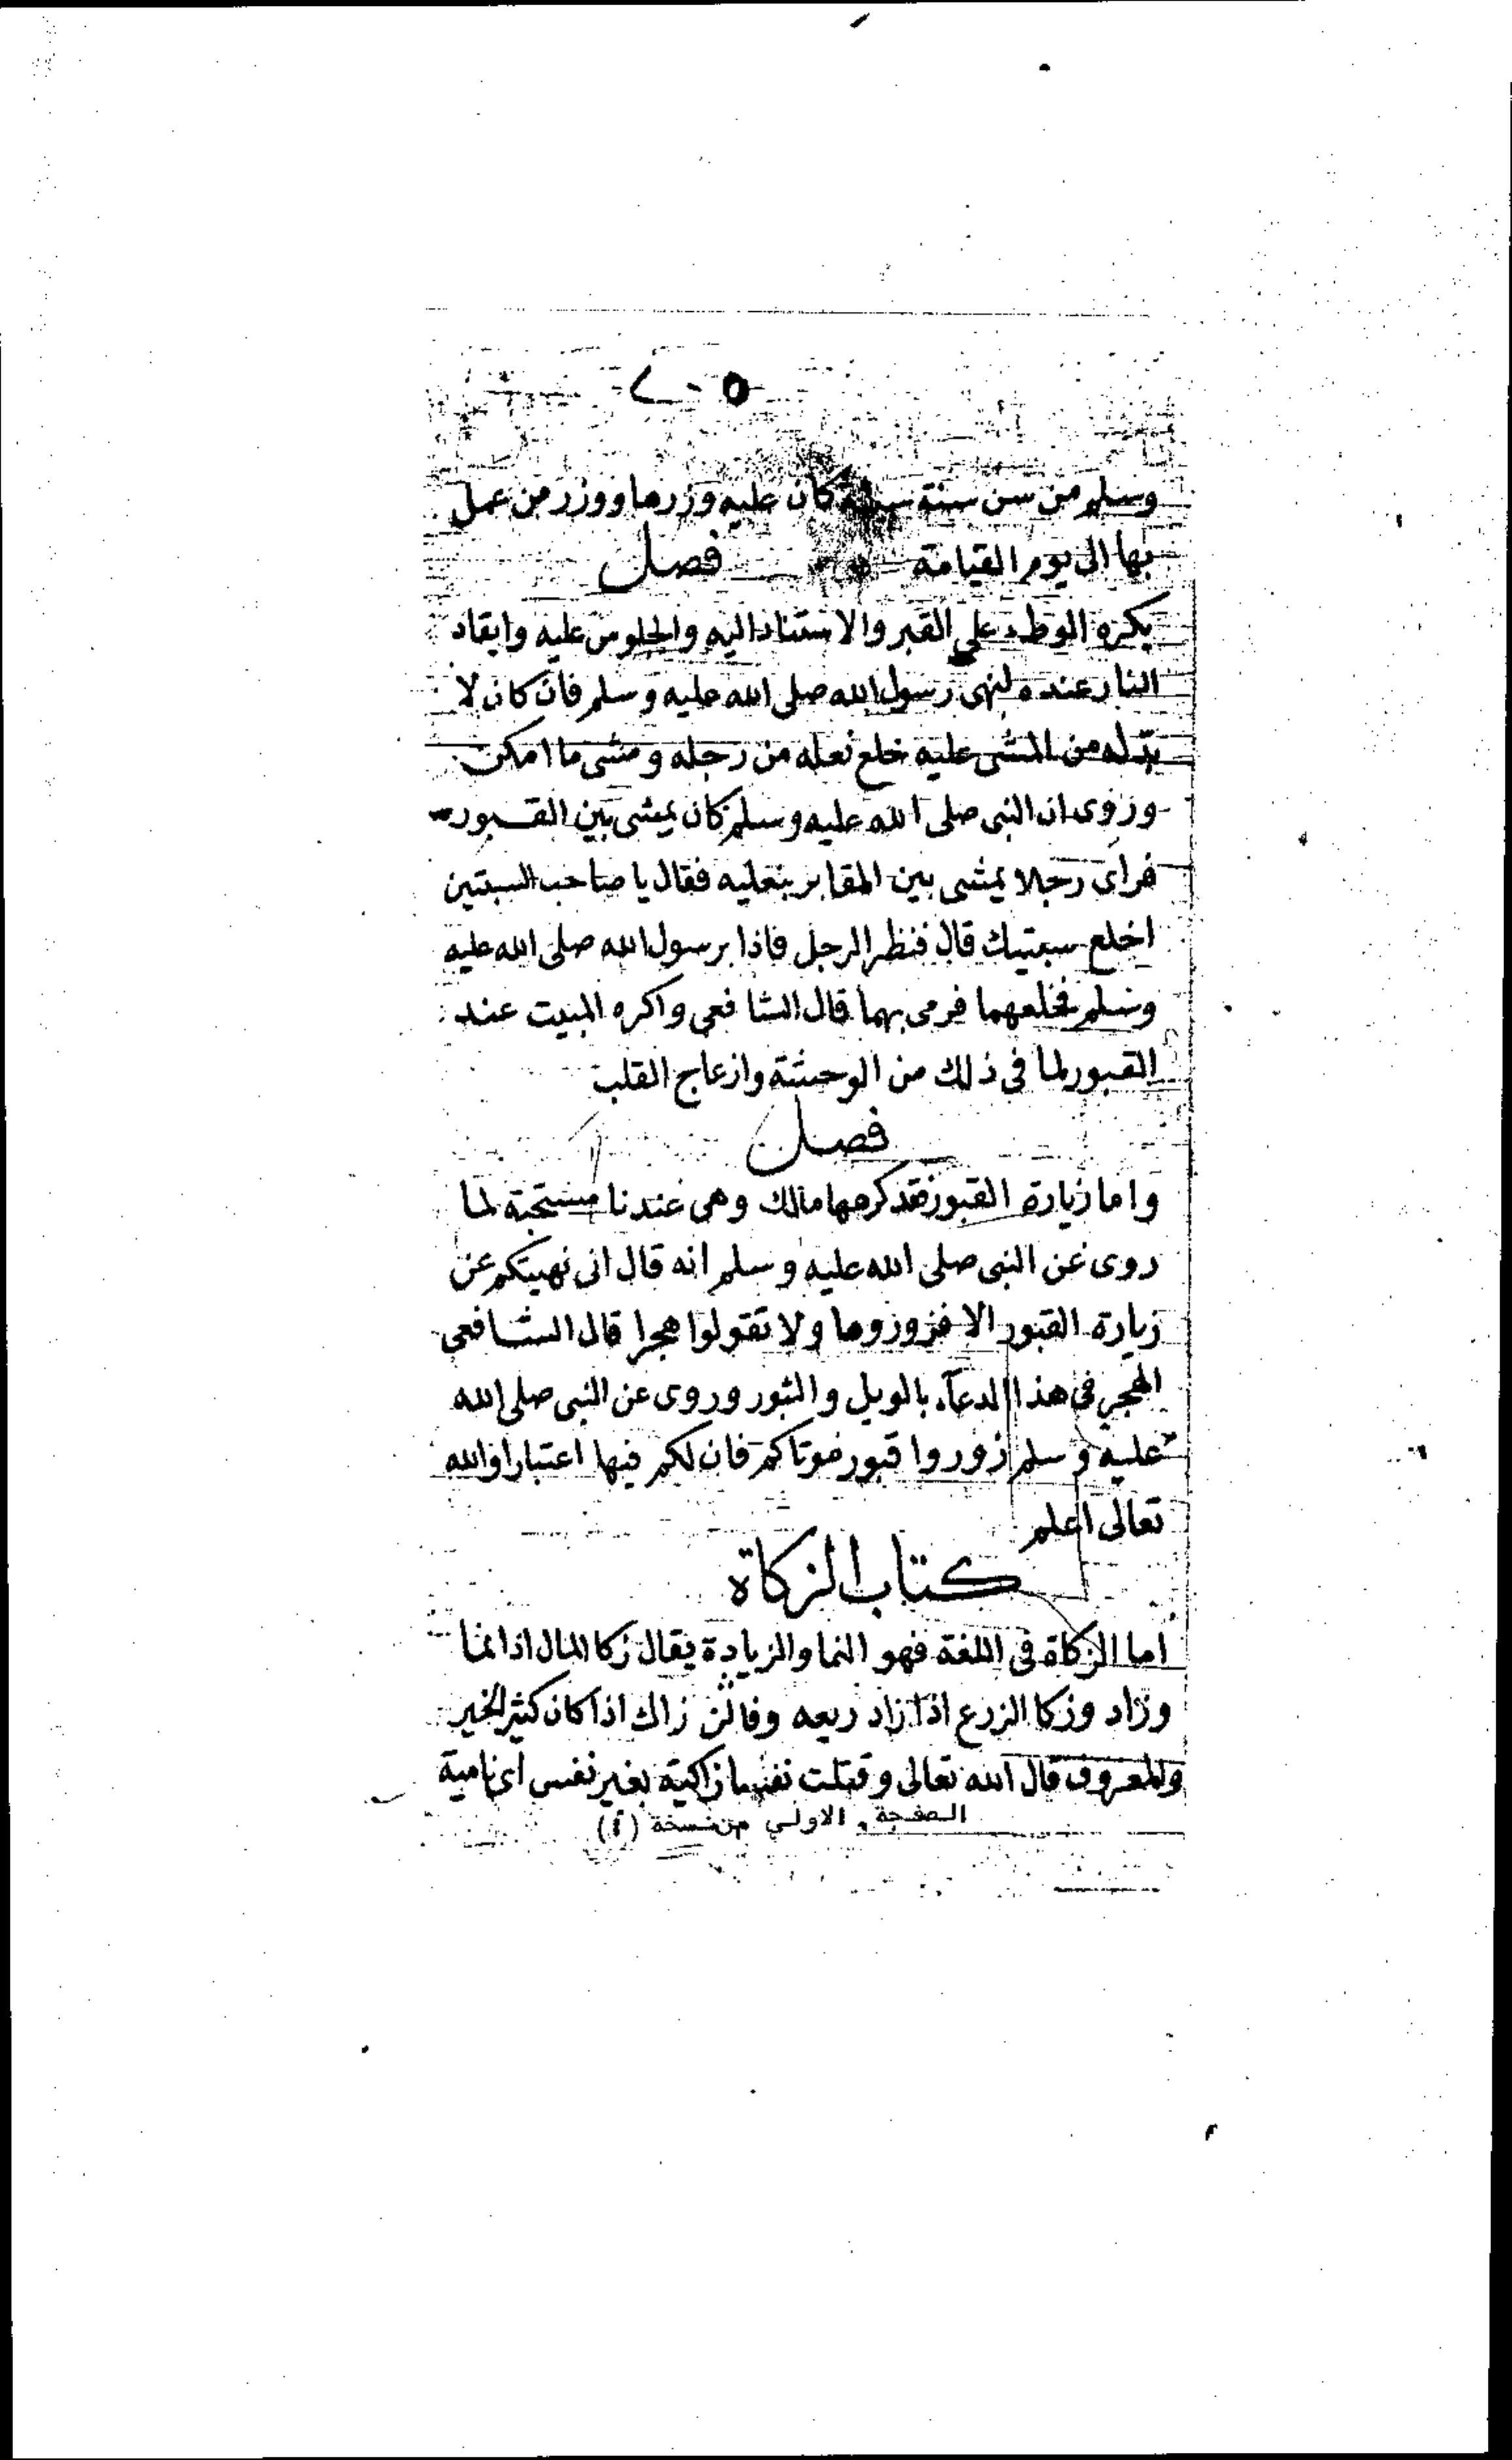 ٢٠٥
وسلم من سن سنة سيئة كان عليه وزرها ووزر من عمل
بها الى يوم القيامة فصل
يكره الوطء على القبر والاستناد اليه والجلوس عليه وايقاد
النار عنده لنهى رسول الله صلى الله عليه وسلم فان كان لا
بد له من المشى عليه خلع نعله من رجله ومشى ما امكن
وروى ان النبى صلى الله عليه وسلم كان يمشى بين القبور
فراى رجلا يمشى بين المقابر بنعليه فقال يا صاحب السبتين
اخلع سبتيك قال فنظر الرجل فاذا برسول الله صلى الله عليه
وسلم فخلعهما فرمى بهما قال الشافعي واكره المبيت عند
القبور لما فى ذلك من الوحشة وازعاج القلب
فصل
واما زيارة القبور فقد كرهها مالك وهى عندنا مستحبة لما
روى عن النبى صلى الله عليه وسلم انه قال انى نهيتكم عن
زيارة القبور الا فزوروها ولا تقولوا هجرا قال الشافعى
الهجر فى هذا الدعآء بالويل والثبور وروى عن النبى صلى الله
عليه وسلم زوروا قبور موتاكم فان لكم فيها اعتبارا والله
تعالى اعلم
كتاب الزكاة
اما الزكاة فى اللغة فهو النما والزيادة يقال زكا المال اذا نما
وزاد وزكا الزرع اذا زاد ريعه وفلان زاك اذا كان كثير الخير
والمعروف قال الله تعالى وقتلت نفسا زاكية بغير نفس اى نامية
الصفحة الاولى من نسخة (أ)